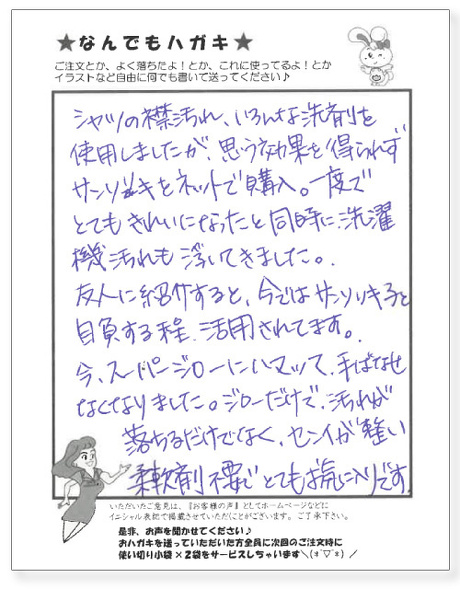 ★なんでもハガキ★
ご注文とか、よく落ちたよ！とか、これに使ってるよ！とか
イラストなど自由に何でも書いて送ってください♪
シャツの襟汚れ、いろんな洗剤を
使用しましたが、思う効果を得られず
サンソルキをネットで購入。一度で
とてもきれいになったと同時に、洗濯
機汚れも浮いてきました。
友人に紹介すると、今ではサンソルキ子と
自負する程、活用されてます。
今、スーパージローにハマッて、手ばなせ
なくなりました。ジローだけで、汚れが
落ちるだけでなく、センイが整い
柔軟剤不要でとてもお気に入りです。
いただいたご意見は、『お客様の声』としてホームページなどに
イニシャル表記で掲載させていただくことがございます。ご了承下さい。
是非、お声を聞かせてください♪
おハガキを送っていただいた方全員に次回のご注文時に
使い切り小袋×2袋をサービスしちゃいます＼(*´▽`*)／